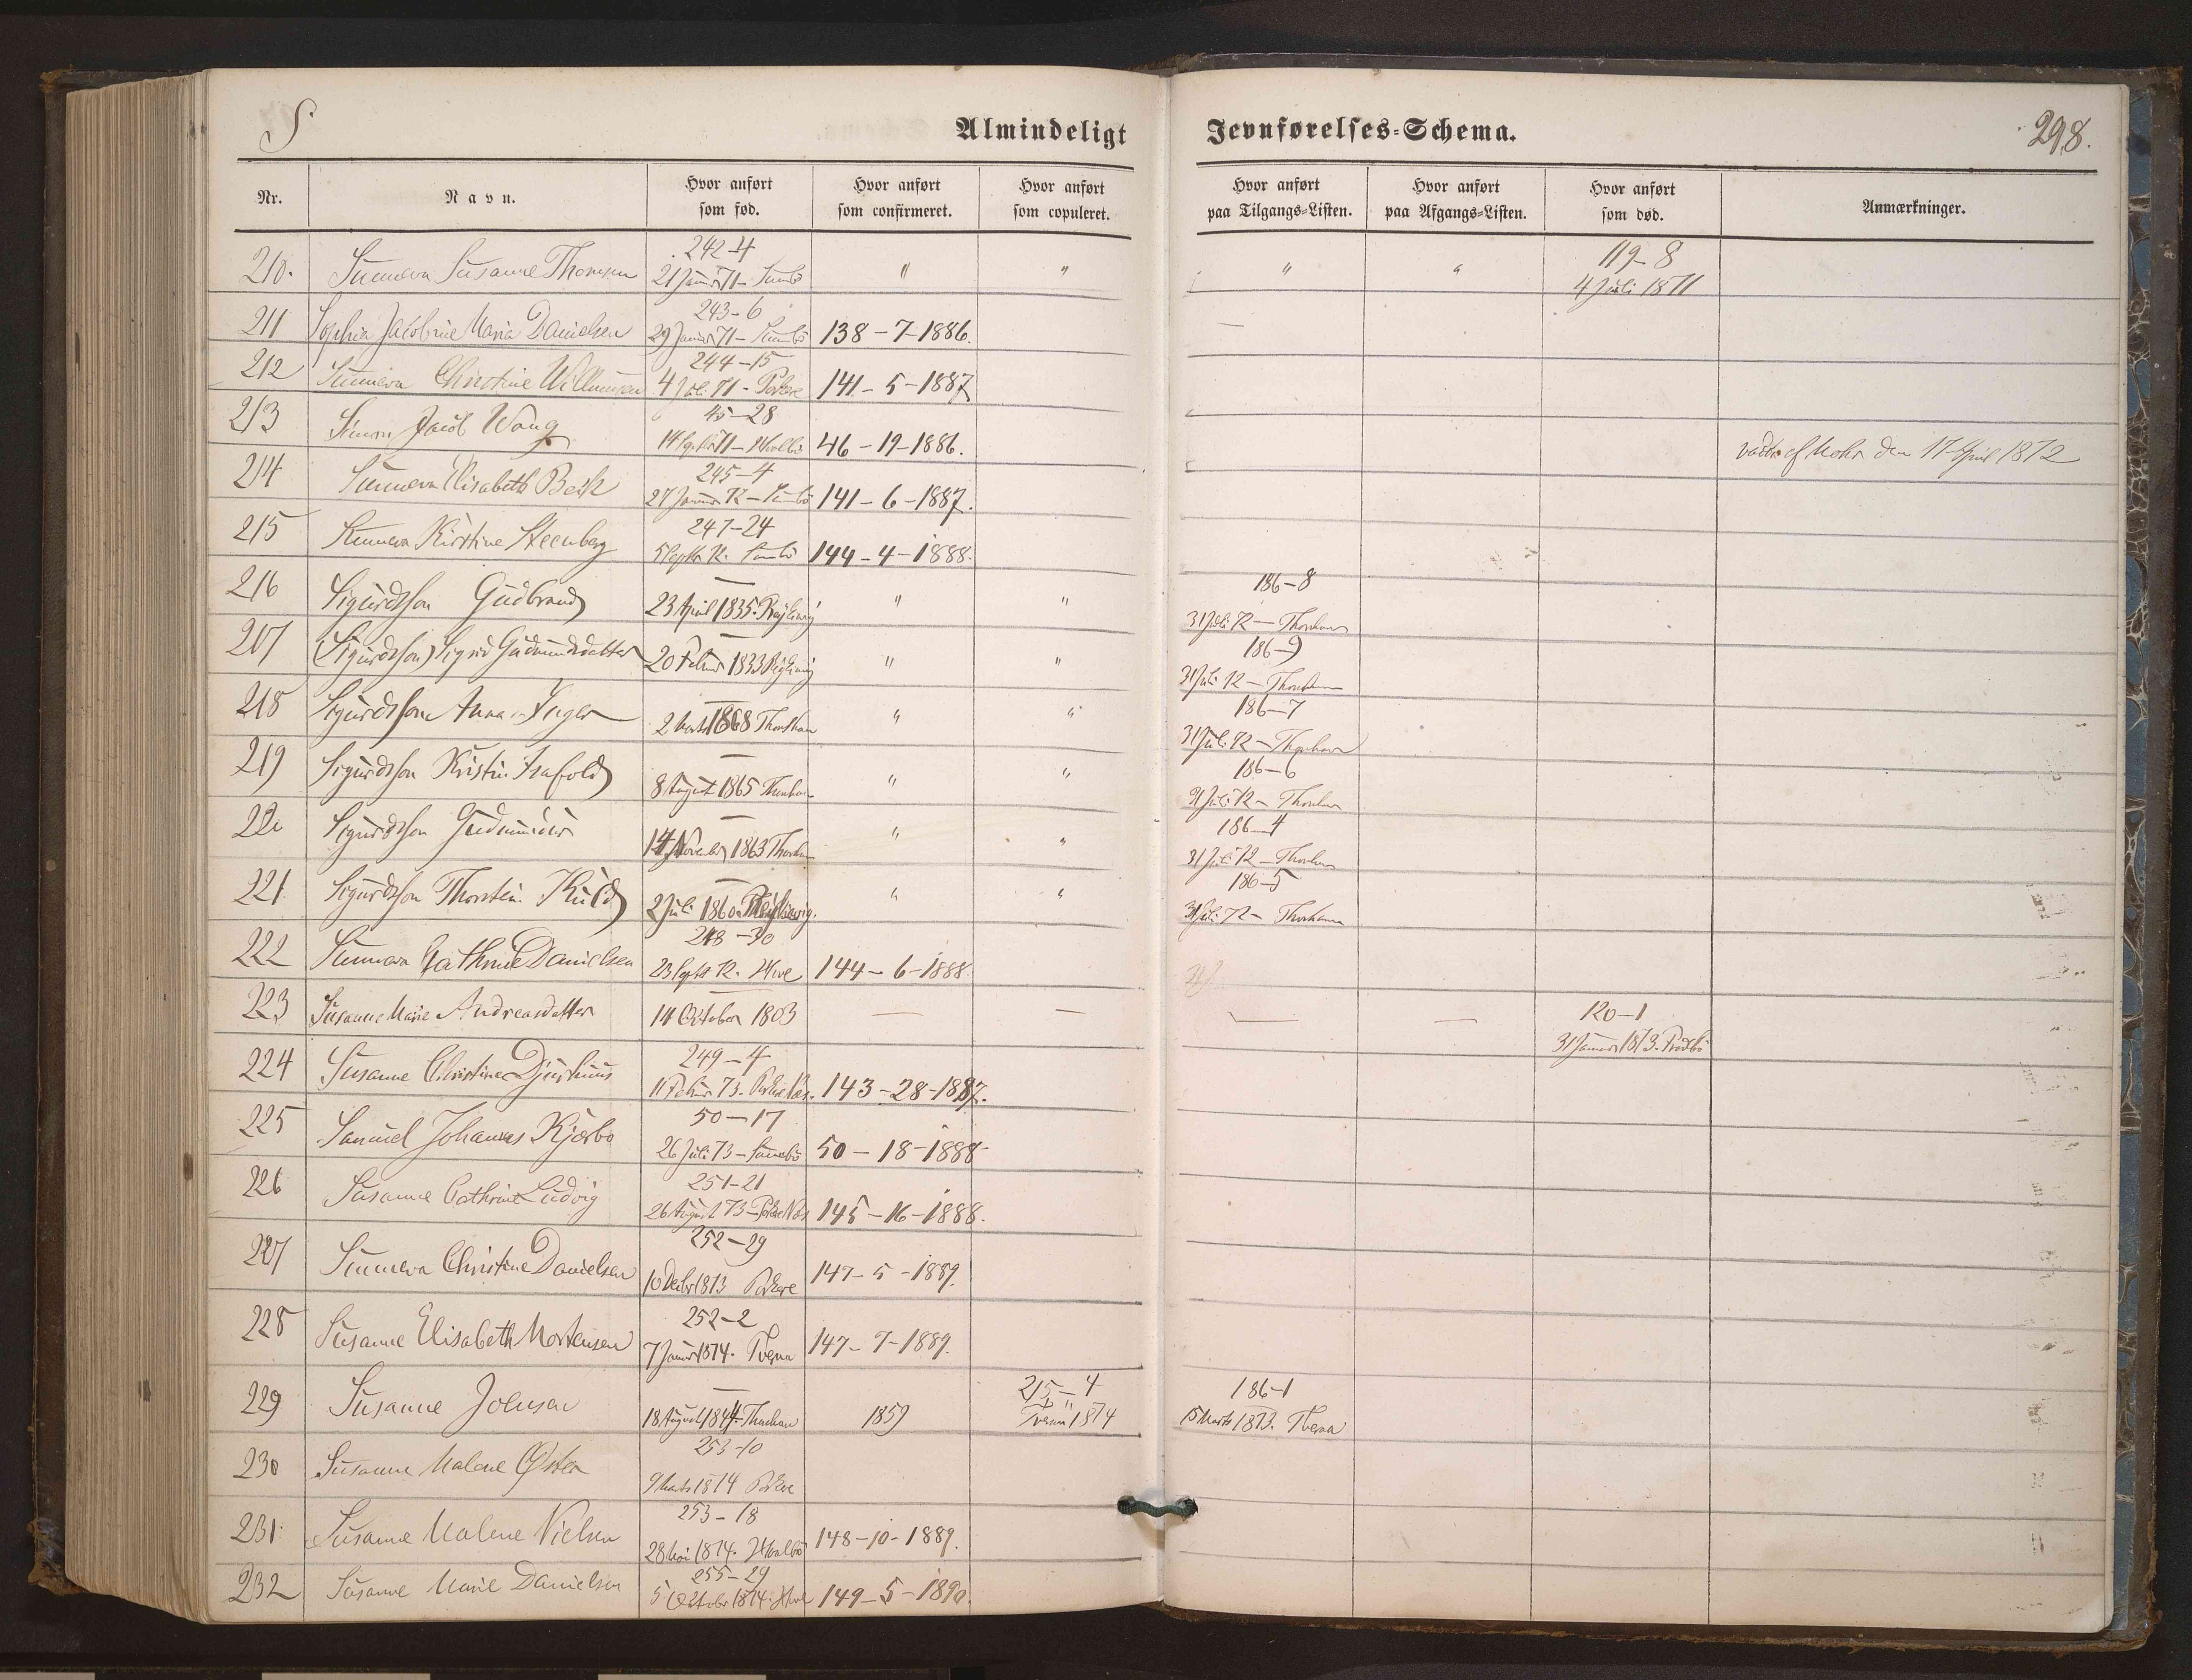 S
Almindeligt Jevnførelses-Schema.
298.
Nr. Navn. Hvor anført som fød. Hvor anført som confirmeret. Hvor anført som copuleret. Hvor anført paa Tilgangs-Listen. Hvor anført paa Afgangs-Listen. Hvor anført som død. Anmærkninger.
242-4 119-8
210. Sunneva Susanne Thomsen 21 Januar 71 - Sumbø " " " " 4 Juli 1871
243-6
211 Sophia Jacobine Maria Danielsen 29 Januar 71 - Sumbø 138-7-1886.
244-15
212 Sunneva Christine Willumsen 4 Juli 71 - Porkere 141-5-1887
45-28
213 Simon Jacob Wang 14 Septbr 71 - Hvalbø 46-19-1886. den 17 April 1872
245-4
214 Sunneva Elisabeth Beck 27 Januar 72 - Sumbø 141-6-1887.
247-24
215 Sunneva Kirstine Steenberg 5 Septbr 72. Sumbø 144-4-1888.
— 186-8
216 Sigurdsson Gudbrand 23 April 1835. " " 31 Juli 72 - Thorshavn
— 186-9
217 (Sigurdsson) Sigrid Gudmundsdatter 20 Februar 1833 " " 31 Juli 72 - Thorshavn
— 186-7
218 Sigurdsson Anna Inger 2 Marts 1868 Thorshavn " " 31 Juli 72 - Thorshavn
— 186-6
219 Sigurdsson Kristin Isafold 8 August 1865 Thorshavn " " 31 Juli 72 - Thorshavn
— 186-4
220 Sigurdsson Gudmundur 14 November 1863 Thorshavn " " 31 Juli 72 - Thorshavn
— 186-5
221 Sigurdsson Thorstein Kuld 2 Juli 1860 " " 31 Juli 72 - Thorshavn
248-30
222 Sunneva Cathrine Danielsen 23 Septbr 72. Hove 144-6-1888.
— 120-1
223 Susanne Marie Andreasdatter 14 October 1803 — — — — 31 Januar 1873.
249-4
224 Susanne Christine Djurhuus 11 Februar 73. Porkere Næs. 143-28-1887.
50-17
225 Samuel Johannes Kjærbo 26 Juli 73 - Sumbø 50-18-1888
251-21
226 Susanne Cathrine Ludvig 26 August 73 - Porkere Næs 145-16-1888.
252-29
227 Sunneva Christine Danielsen 10 Decbr 1873 Porkere 147-5-1889.
252-2
228 Susanne Elisabeth Mortensen 7 Januar 1874. Tveraa 147-7-1889.
— 215-4 186-1
229 Susanne Joensen 18 August 1844 Thorshavn 1859 Tveraa 1874 15 Marts 1873. Tveraa
253-10
230 Susanne Malene Øster 9 Marts 1874 Porkere
253-18
231. Susanne Malene Nielsen 28 Mai 1874. Hvalbø 148-10-1889.
255-29
232 Susanne Marie Danielsen 5 Octobr 1874. Hove 149-5-1890.